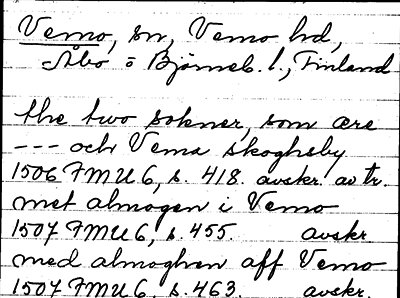 Vemo, sn, Vemo hd,
Åbo o Björneb. l., Finland
the two sokner, som ære
--- och Vema skoghsby
1506 FMU 6, s. 418. avskr. av tr.
met almogen i Vemo
1507 FMU 6, s. 455. avskr.
med almoghen aff Vemo
1507 FMU 6, s. 463. avskr.